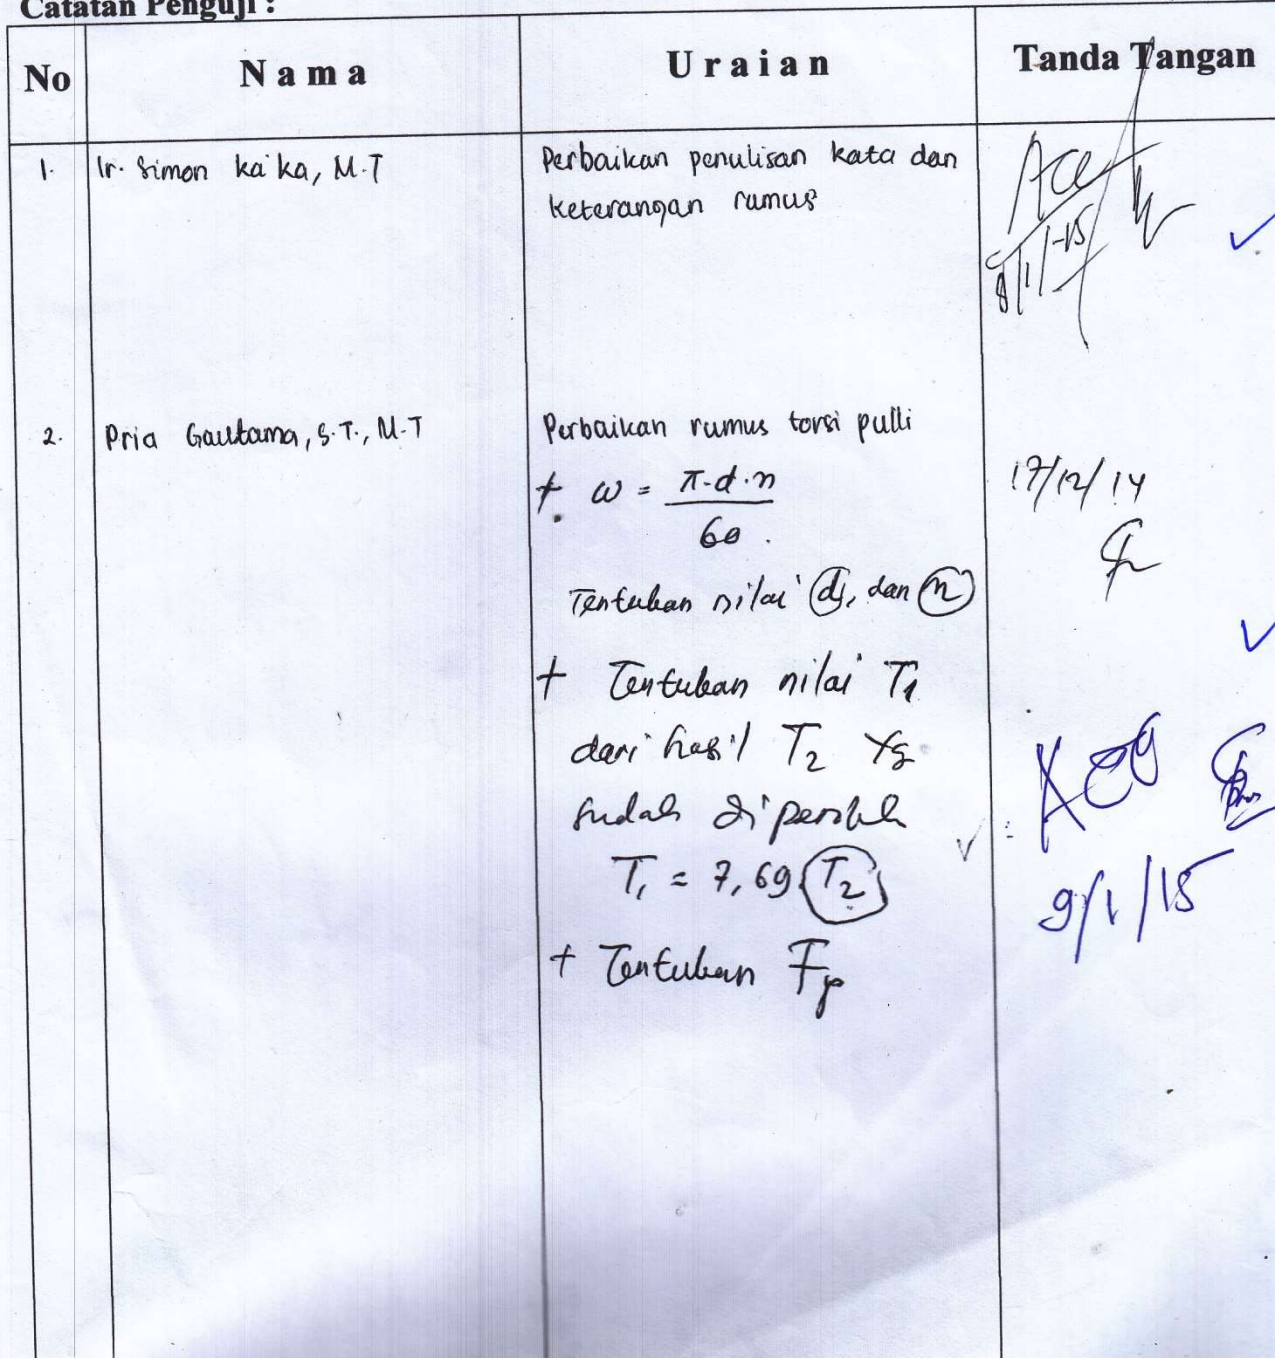 Catatan Penguji :
No Nama Uraian Tanda Tangan
1. Ir. Simon ka'ka, M.T Perbaikan penulisan kata dan
keterangan rumus
Acc
8/1/-15
2. Pria Gautama, S.T., M.T Perbaikan rumus torsi pulli
+ ω = π.d.n / 60
17/12/14
Tentukan nilai d, dan n
+ Tentukan nilai T1
dari hasil T2 yg
sudah diperoleh
T1 = 7,69 T2
+ Tentukan Fp
Acc
9/1/15